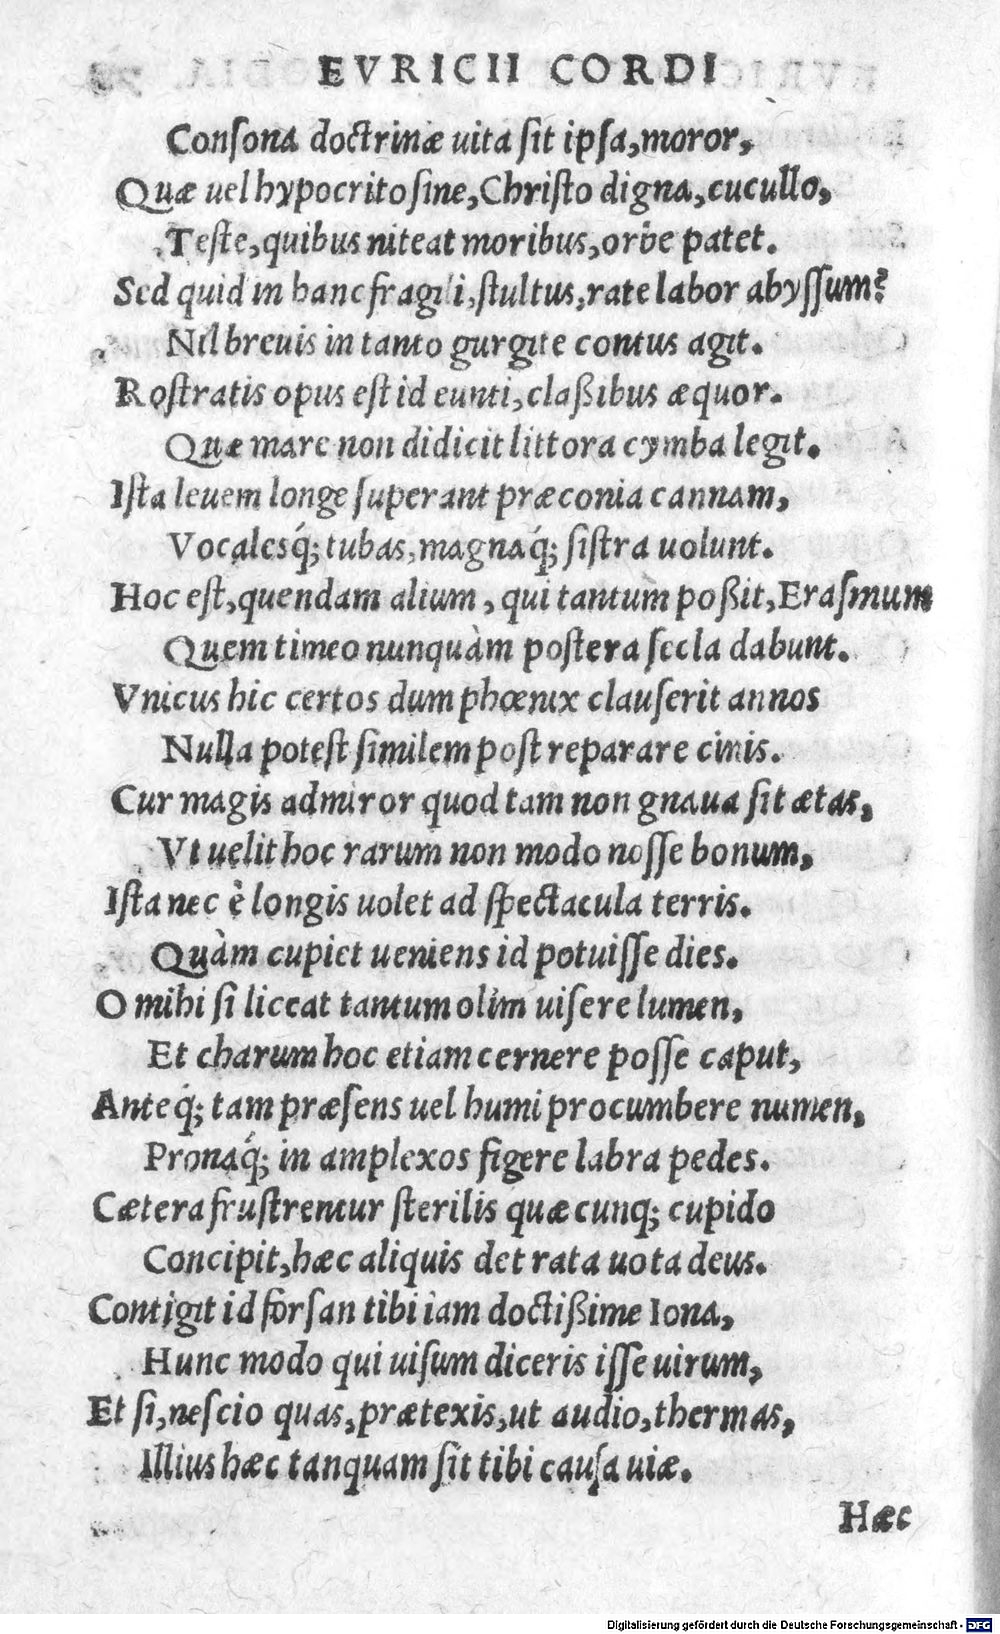 EVRICII CORDI
Conſona doctrinæ uita ſit ipſa, moror,
Quæ uel hypocrito ſine, Chriſto digna, cucullo,
Teſte, quibus niteat moribus, orbe patet.
Sed quid in hanc fragili, ſtultus, rate labor abyſſum?
Nil breuis in tanto gurgite contus agit.
Roſtratis opus eſt id eunti, claßibus æquor.
Quæ mare non didicit littora cymba legit.
Iſta leuem longe ſuperant præconia cannam,
Vocalesq́; tubas, magnaq́; ſiſtra uolunt.
Hoc eſt, quendam alium, qui tantum poßit, Eraſmum
Quem timeo nunquàm poſtera ſecla dabunt.
Vnicus hic certos dum phœnix clauſerit annos
Nulla poteſt ſimilem poſt reparare cinis.
Cur magis admiror quod tam non gnaua ſit ætas,
Vt uelit hoc rarum non modo noſſe bonum,
Iſta nec è longis uolet ad ſpectacula terris.
Quàm cupiet ueniens id potuiſſe dies.
O mihi ſi liceat tantum olim uiſere lumen,
Et charum hoc etiam cernere poſſe caput,
Anteq́; tam præſens uel humi procumbere numen,
Pronaq́; in amplexos figere labra pedes.
Cætera fruſtrentur ſterilis quæcunq; cupido
Concipit, hæc aliquis det rata uota deus.
Contigit id forſan tibi iam doctißime Iona,
Hunc modo qui uiſum diceris iſſe uirum,
Et ſi, neſcio quas, prætexis, ut audio, thermas,
Illius hæc tanquam ſit tibi cauſa uiæ.
Hæc
Digitalisierung gefördert durch die Deutsche Forschungsgemeinschaft - DFG